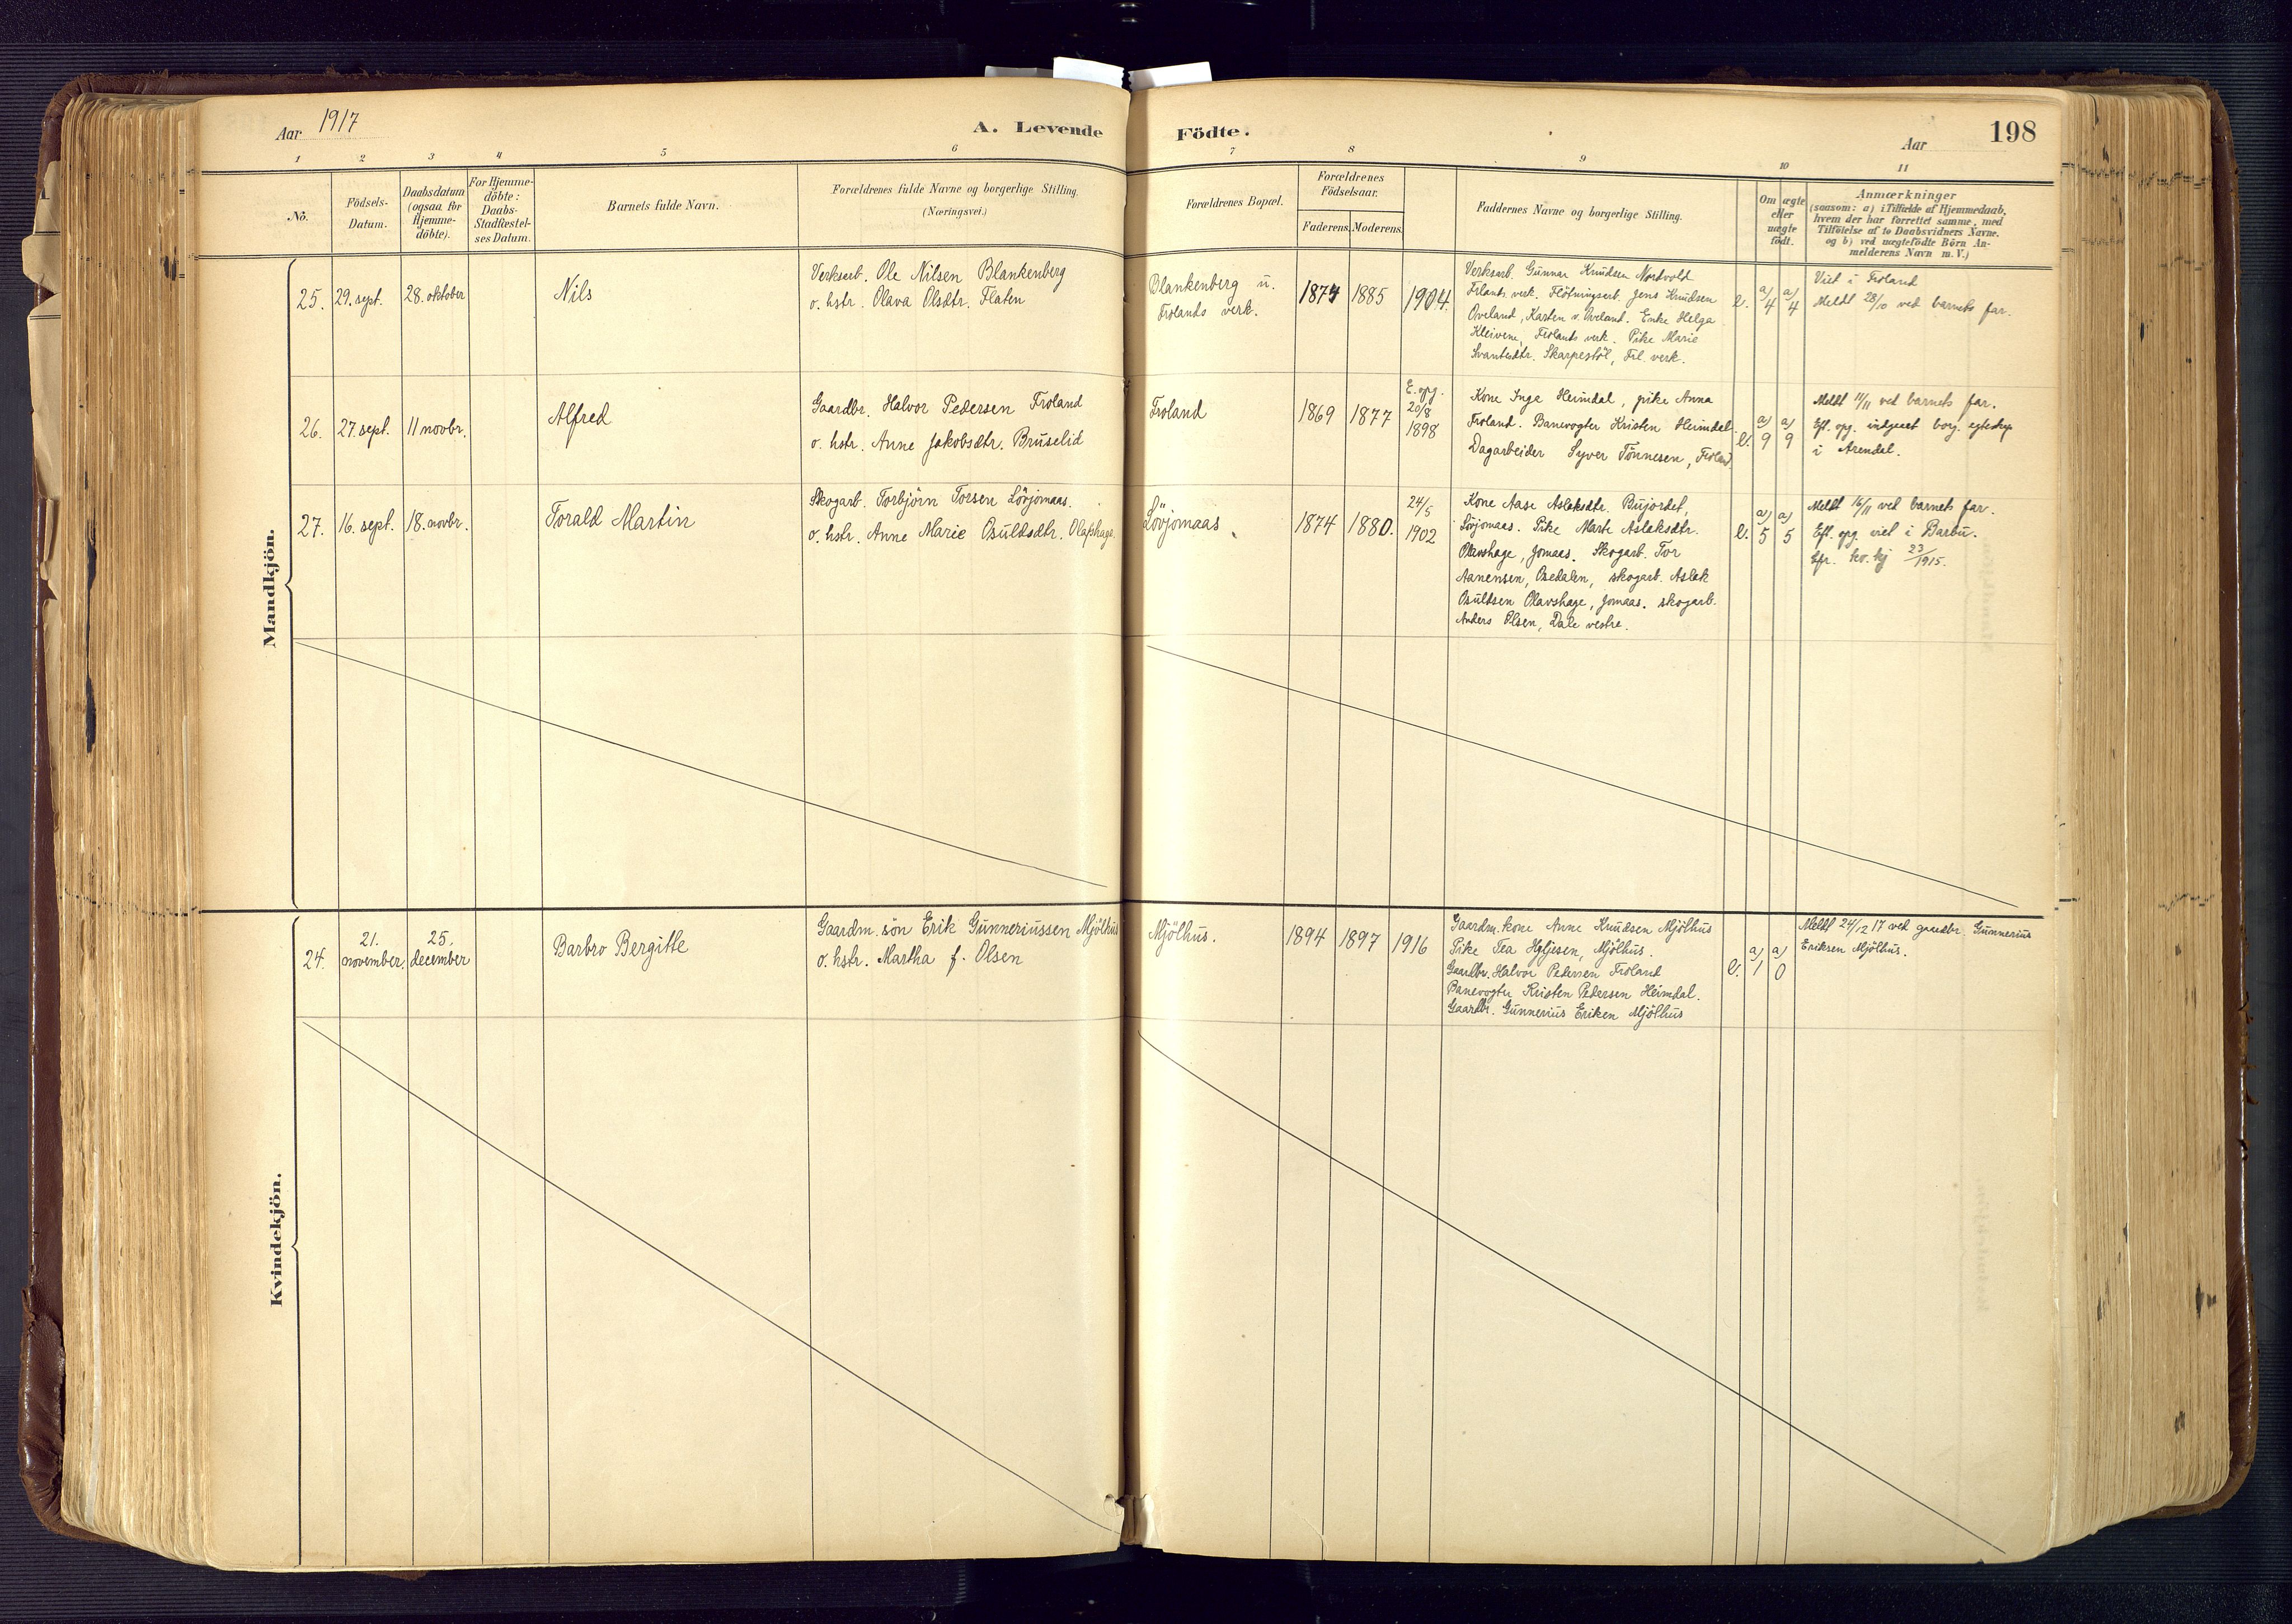 Aar 1917
A. Levende Födte.
Aar
198
1 2 3 4 5 6 7 8 9 10 11
No.
Födsels-
Datum.
Daabsdatum
(ogsaa for
Hjemme-
döbte).
For Hjemme-
döbte:
Daabs-
Stadfæstel-
ses Datum.
Barnets fulde Navn.
Forældrenes fulde Navne og borgerlige Stilling.
(Næringsvei.)
Forældrenes Bopæl.
Forældrenes
Födselsaar.
Faderens. Moderens.
Faddernes Navne og borgerlige Stilling.
Om ægte
eller
uægte
födt.
Anmærkninger
(saasom: a) i Tilfælde af Hjemmedaab,
hvem der har forrettet samme, med
Tilföielse af to Daabsvidners Navne.
og b) ved uægtefödte Börn An-
melderens Navn m. V.)
Mandkjön.
25. 29. sept. 28. oktober
Nils
Verksarb. Ole Nilsen Blankenberg
o. hstr. Olava Olsdtr. Flaten
Blankenberg u.
Frolands verk.
1874 1885 1904.
Verksarb. Gunnar Knudsen Nordvold
Frlands verk. Flötningsarb. Jens Knudsen
Oveland, Karten v. Oveland. Enke Helga
Kleivene, Frolands verk. Pike Marie
Svantesdtr. Skarpestöl, Frl. verk.
e. a) 4 a) 4
Viet i Froland
Meldt 28/10 ved barnets far.
26. 27. sept. 11 novbr.
Alfred
Gaardbr. Halvor Pedersen Froland
o. hstr. Anne Jakobsdtr. Bruselid
Froland
1869 1877
E. opg.
20/8
1898
Kone Inga Heimdal, pike Anna
Froland. Banevogter Kristen Heimdal.
Dagarbeider Syver Tönnesen, Froland.
e. a) 9 a) 9
Meldt 11/11 ved barnets far.
Eft. opg. indgaaet borg. egtesk.
i Arendal.
27. 16. sept. 18. novbr.
Torald Martin
Skogarb. Torbjörn Torsen Lövjomaas.
o. hstr. Anne Marie Osuldsdtr. Olafshage.
Lövjomaas
1874 1880.
24/5
1902
Kone Aase Aslaksdtr. Bujordet,
Lövjomaas. Pike Marte Aslaksdtr.
Olavshage, Jomaas. Skogarb. Tor
Aanensen, Osedalen, skogarb. Aslak
Osuldsen Olavshage, Jomaas. skogarb.
Anders Olsen, Dale vestre.
e. a) 5 a) 5
Meldt 16/11 ved barnet far.
Eft. opg. viet i Barbu.
Cfr. kv. kj 23/1915.
Kvindekjön.
24.
21.
november.
25.
december
Barbro Bergitte
Gaardm. sön Erik Gunneriussen Mjölhus
o. hstr. Martha f. Olsen
Mjölhus.
1894 1897 1916
Gaardm. kone Anne Knudsen Mjölhus
Pike Tea Mjölhus.
Gaardbr. Halvor Pedersen Froland
Banevogter Kristen Pedersen Heimdal.
Gaardbr. Gunnerius Eriken Mjölhus
e. a) 1 a) 0
Meldt 24/12 17 ved gaardbr. Gunnerius
Eriksen Mjölhus.